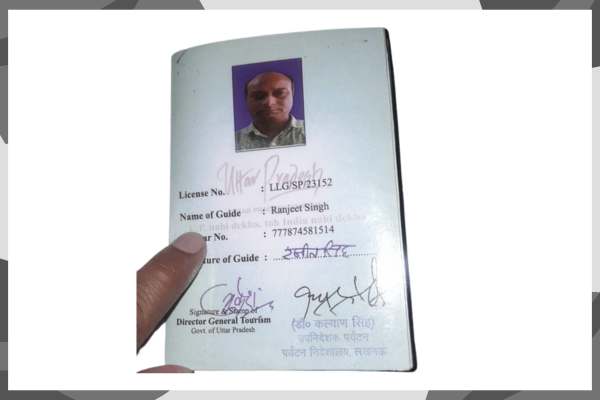 Uttar Pradesh
License No. : LLG/SP/23152
Name of Guide : Ranjeet Singh
P. nahi dekha, toh India nahi dekha
ar No. : 777874581514
ure of Guide :
Signature & Stamp of
Director General Tourism
Govt. of Uttar Pradesh
(डॉ० कल्याण सिंह)
उपनिदेशक, पर्यटन
पर्यटन निदेशालय, लखनऊ